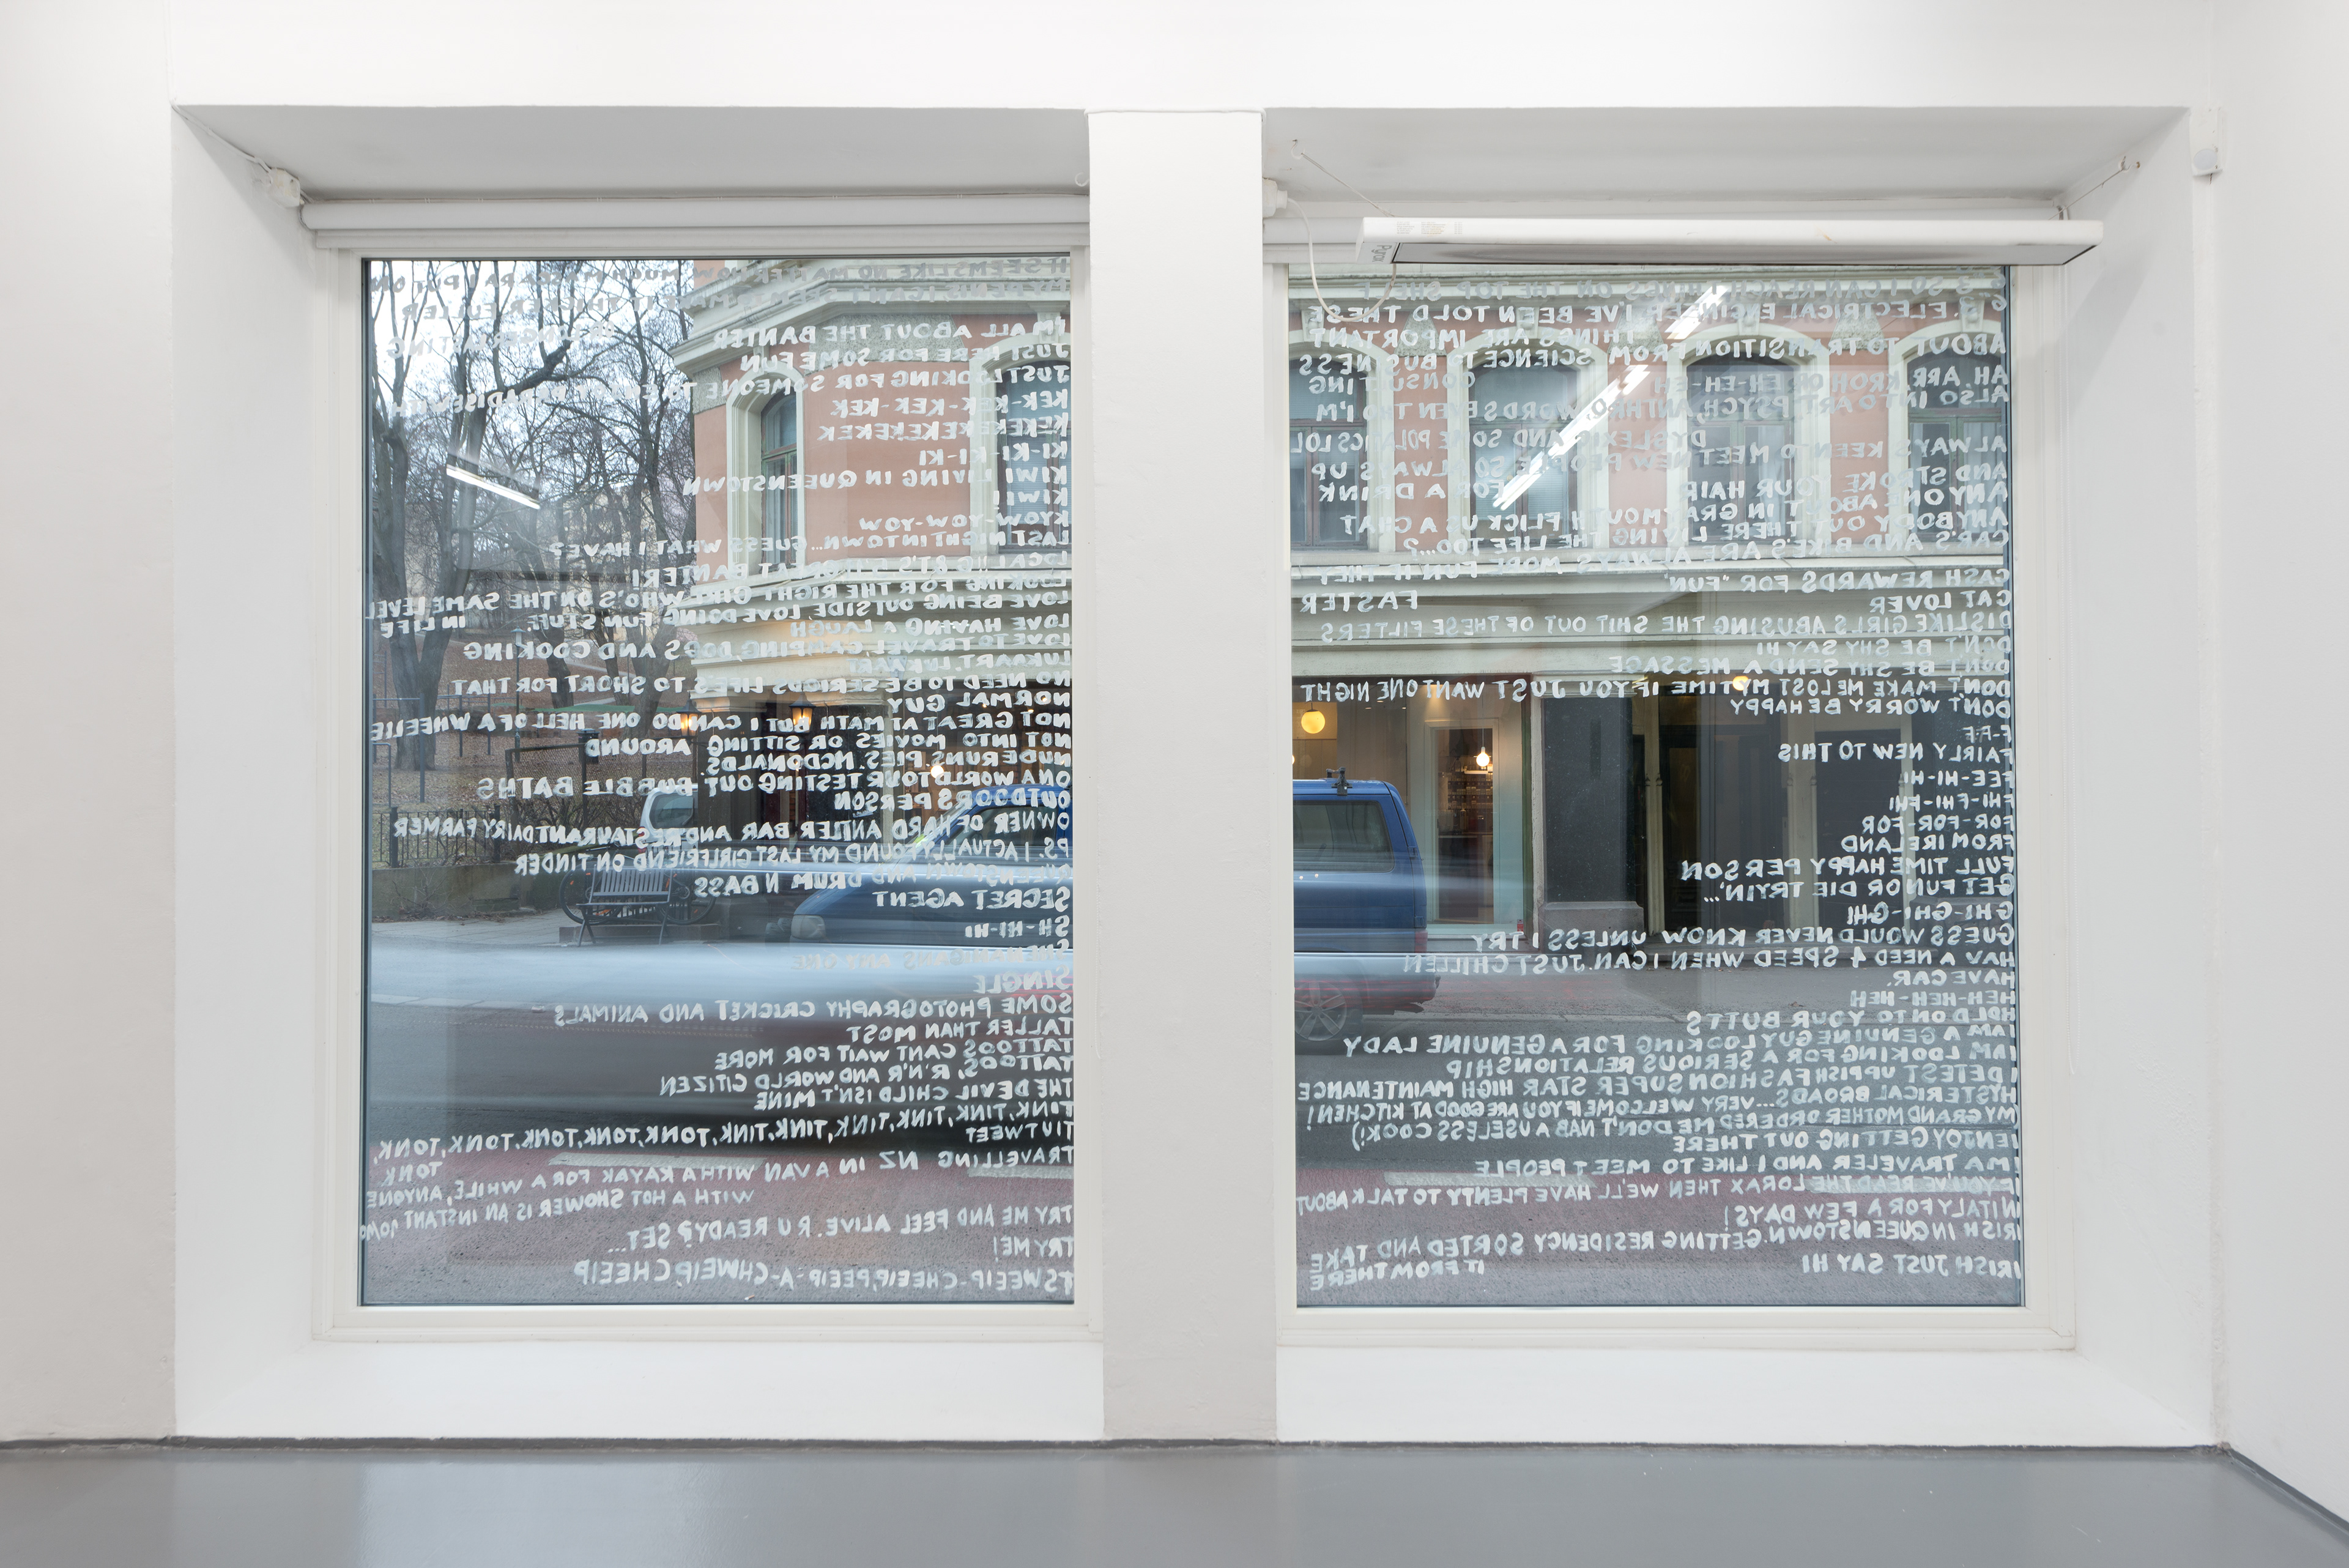 6'3 SO I CAN REACH THINGS ON THE TOP SHELF
G. ELECTRICAL ENGINEER I'VE BEEN TOLD THESE
THINGS ARE IMPORTANT
ABOUT TO TRANSITION FROM SCIENCE TO BUSINESS
CONSULTING
AH, ARR, KROH OR EH-EH-EH
ALSO INTO ART, PSYCH, ANTHRO, WORDS EVEN THO I'M
DYSLEXIC AND SOME POLITICS LOL
ALWAYS KEEN TO MEET NEW PEOPLE SO ALWAYS UP
FOR A DRINK
AND STROKE YOUR HAIR
ANYONE ABOUT IN GRAYMOUTH FLICK US A CHAT
ANYBODY OUT THERE LIVING THE LIFE TOO...?
CAR'S AND BIKE'S ARE ALWAYS MORE FUN IF THEY
FASTER
CASH REWARDS FOR "FUN".
CAT LOVER
DISLIKE GIRLS ABUSING THE SHIT OUT OF THESE FILTERS
DON'T BE SHY SAY HI
DON'T BE SHY SEND A MESSAGE
DON'T MAKE ME LOST MY TIME IF YOU JUST WANT ONE NIGHT
DON'T WORRY BE HAPPY
F-F-F
FAIRLY NEW TO THIS
FEE-HI-HI
FHI-FHI-FHI
FOR-FOR-FOR
FROM IRELAND
FULL TIME HAPPY PERSON
GET FUN OR DIE TRYIN'...
GHI-GHI-GHI
GUESS WOULD NEVER KNOW UNLESS I TRY
HAV A NEED 4 SPEED WHEN I CAN. JUST CHILLEN
HAVE CAR.
HEH-HEH-HEH
HOLD ON TO YOUR BUTTS
I AM A GENUINE GUY LOOKING FOR A GENUINE LADY
I AM LOOKING FOR A SERIOUS RELATIONSHIP
I DETEST UPPISH FASHION SUPER STAR HIGH MAINTENANCE
HYSTERICAL BROADS...VERY WELCOME IF YOU ARE GOOD AT KITCHEN!
(MY GRAND MOTHER ORDERED ME DON'T NAB A USELESS COOK!)
I ENJOY GETTING OUT THERE
I'M A TRAVELER AND I LIKE TO MEET PEOPLE
IF YOU'VE READ THE LORAX THEN WE'LL HAVE PLENTY TO TALK ABOUT
IN ITALY FOR A FEW DAYS!
IRISH IN QUEENSTOWN. GETTING RESIDENCY SORTED AND TAKE
IT FROM THERE
IRISH JUST SAY HI
IT SEEMS LIKE NO MATTER HOW MUCH MASCARA I PUT ON
MY PENIS I CAN'T
I'M ALL ABOUT THE BANTER
JUST HERE FOR SOME FUN
JUST LOOKING FOR SOMEONE TO
KEK-KEK-KEK-KEK
KEKEKEKEKEKEK
KI-KI-KI-KI
KIWI LIVING IN QUEENSTOWN
KIWI!
KYOW-YOW-YOW
LAST NIGHT IN TOWN... GUESS WHAT I HAVE?
GREAT BANTER!
LOOKING FOR THE RIGHT GIRL WHO'S ON THE SAME LEVEL
IN LIFE
LOVE BEING OUTSIDE, LOVE DOING FUN STUFF.
LOVE HAVING A LAUGH
LOVE TO TRAVEL, CAMPING, DOGS AND COOKING
NO NEED TO BE SERIOUS LIFE'S TO SHORT FOR THAT
NORMAL GUY
NOT GREAT AT MATH BUT I CAN DO ONE HELL OF A WHEELIE
NOT INTO MOVIES OR SITTING AROUND
NUDE RUNS. PIES. MCDONALDS.
ON A WORLD TOUR TESTING OUT BUBBLE BATHS
OUTDOORS PERSON
OWNER OF HARD ANTLER BAR AND RESTAURANT. DAIRY FARMER
P.S. I ACTUALLY FOUND MY LAST GIRLFRIEND ON TINDER
AND DRUM N BASS
SECRET AGENT
SH-HI-HI
SHENANIGANS ANYONE
SINGLE
SOME PHOTOGRAPHY CRICKET AND ANIMALS
TALLER THAN MOST
TATTOOS CANT WAIT FOR MORE
TATTOOS, R'N'R AND WORLD CITIZEN
THE DEVIL CHILD ISN'T MINE
TINK, TINK, TINK, TINK, TINK, TONK, TONK, TONK, TONK, TONK,
TONK
TIUTWEET
TRAVELLING NZ IN A VAN WITH A KAYAK FOR A WHILE, ANYONE
WITH A HOT SHOWER IS AN INSTANT 10/10
TRY ME AND FEEL ALIVE. R U READY? SET...
TRY ME!
TSWEEIP-CHEEIP, PEEIP-A-CHWEIP CHEEIP